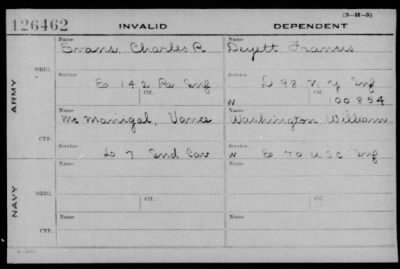 (3-H-5)
126462 INVALID DEPENDENT
Name Name
Evans, Charles R Deyett Francis
ORIG. Service Service
E 142 Pa Inf D 98 N Y Inf
Ctf. W Ctf. 100854
ARMY
Name Name
Mc Manigal, Vance Washington William
CTF. Service Service
L 7 Ind Cav W E 70 U S C Inf
Name Name
ORIG.
NAVY
Name Name
CTF.